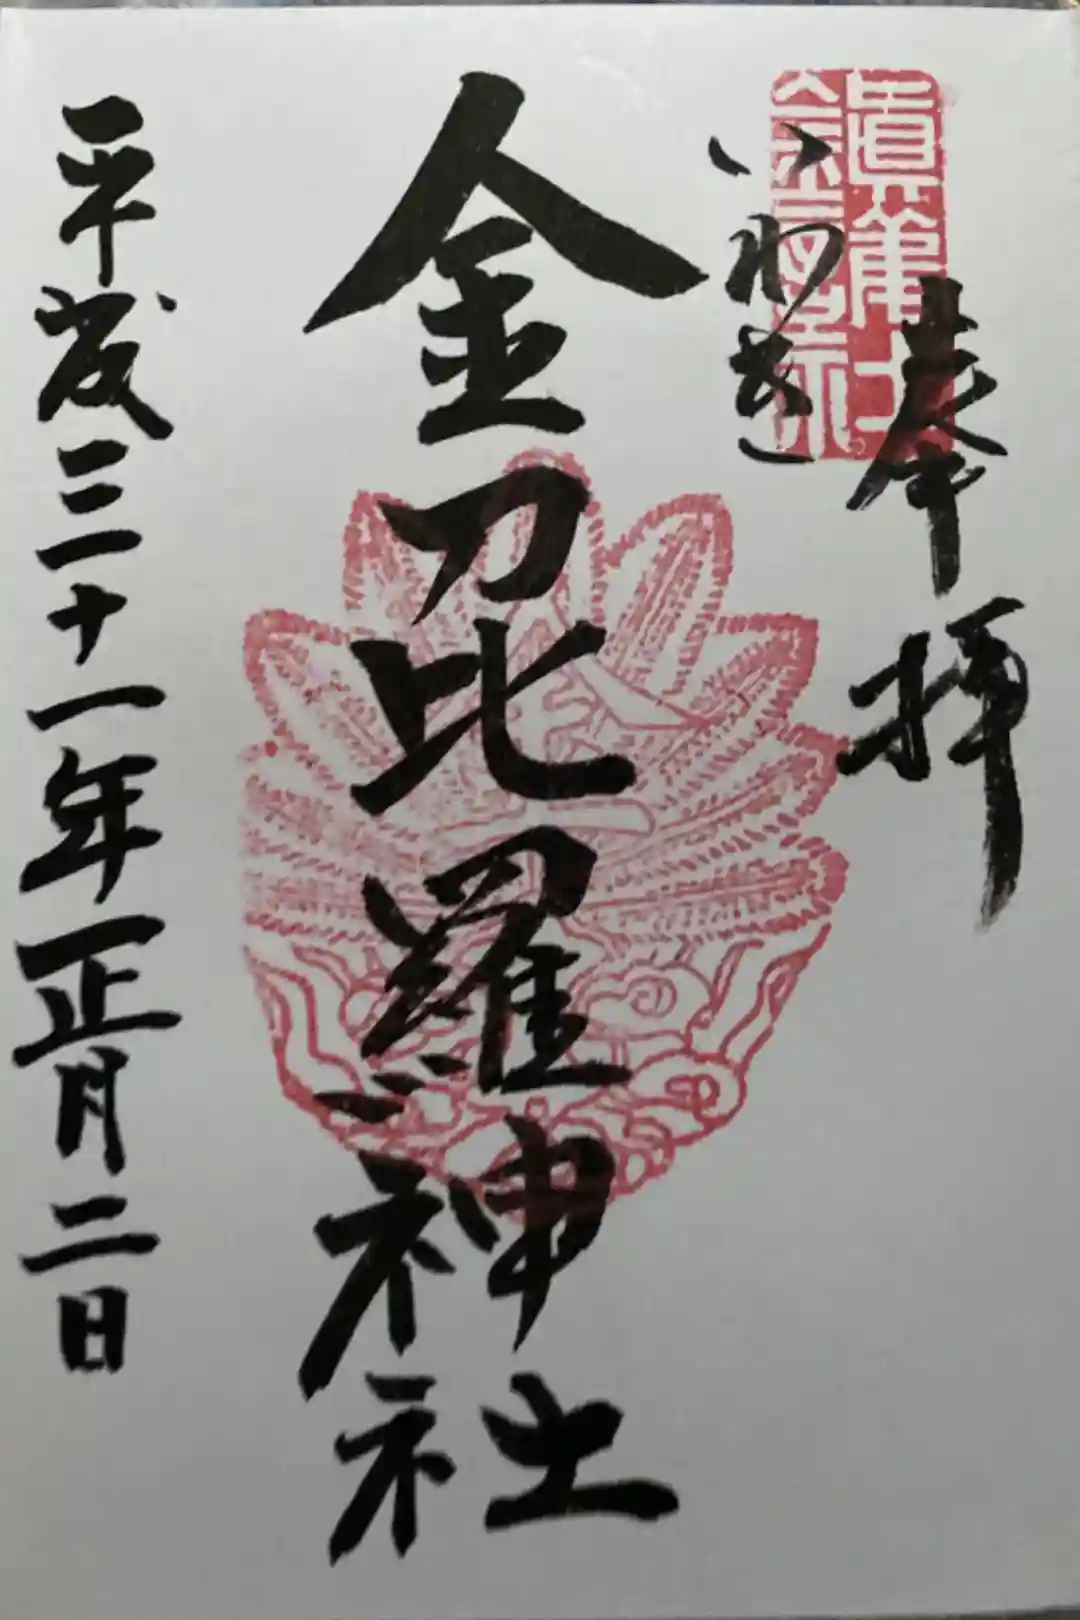 奉拝
いわき
金刀比羅神社
平成三十一年正月二日